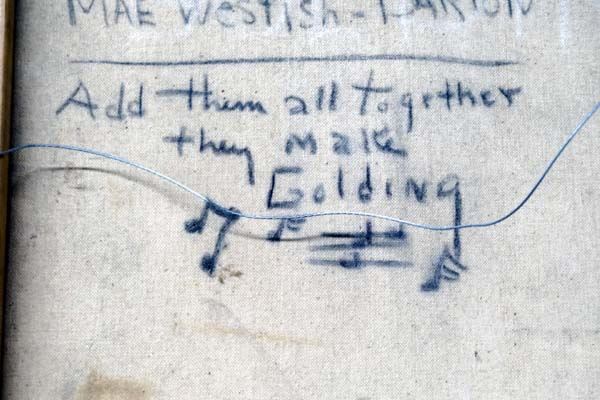 MAE Westish - BARTON
Add them all together
they make
Golding